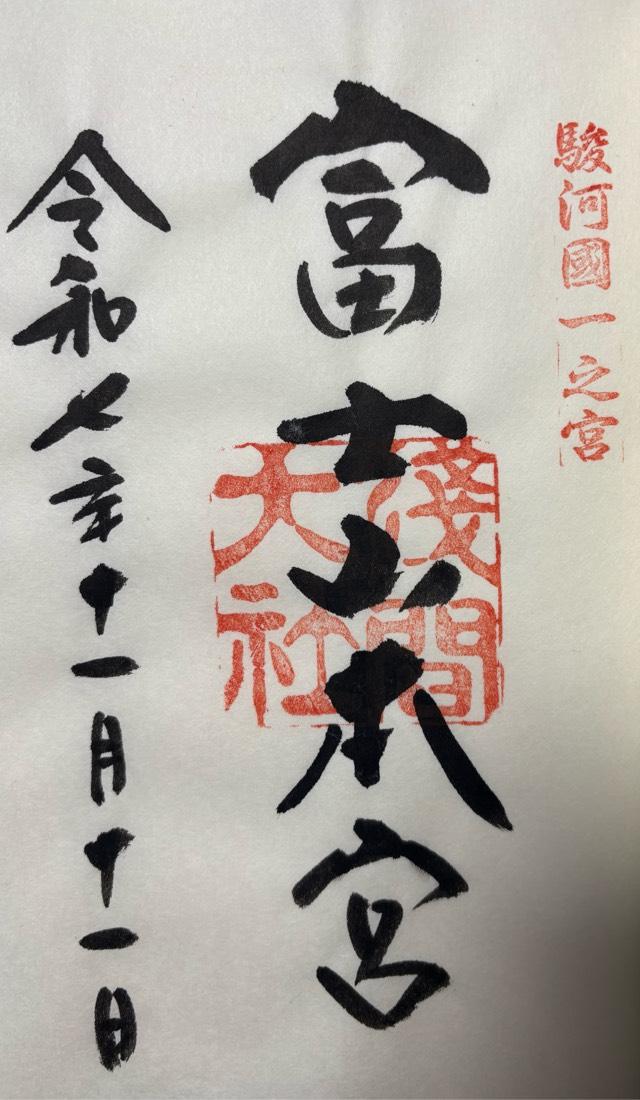 駿河國一之宮
富士山本宮
淺間
大社
令和七年十一月十一日